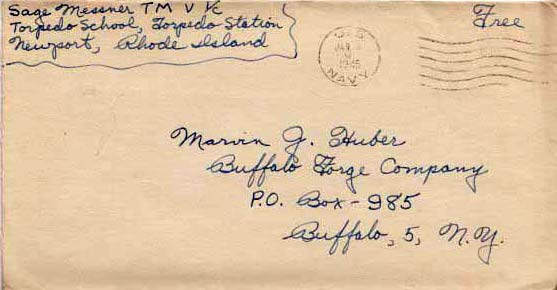 Sage Messner TM V 1/c
Torpedo School, Torpedo Station
Newport, Rhode Island
Free
U.S.
JAN
1945
NAVY
Marvin J. Huber
Buffalo Forge Company
P.O. Box - 985
Buffalo, 5, N.Y.